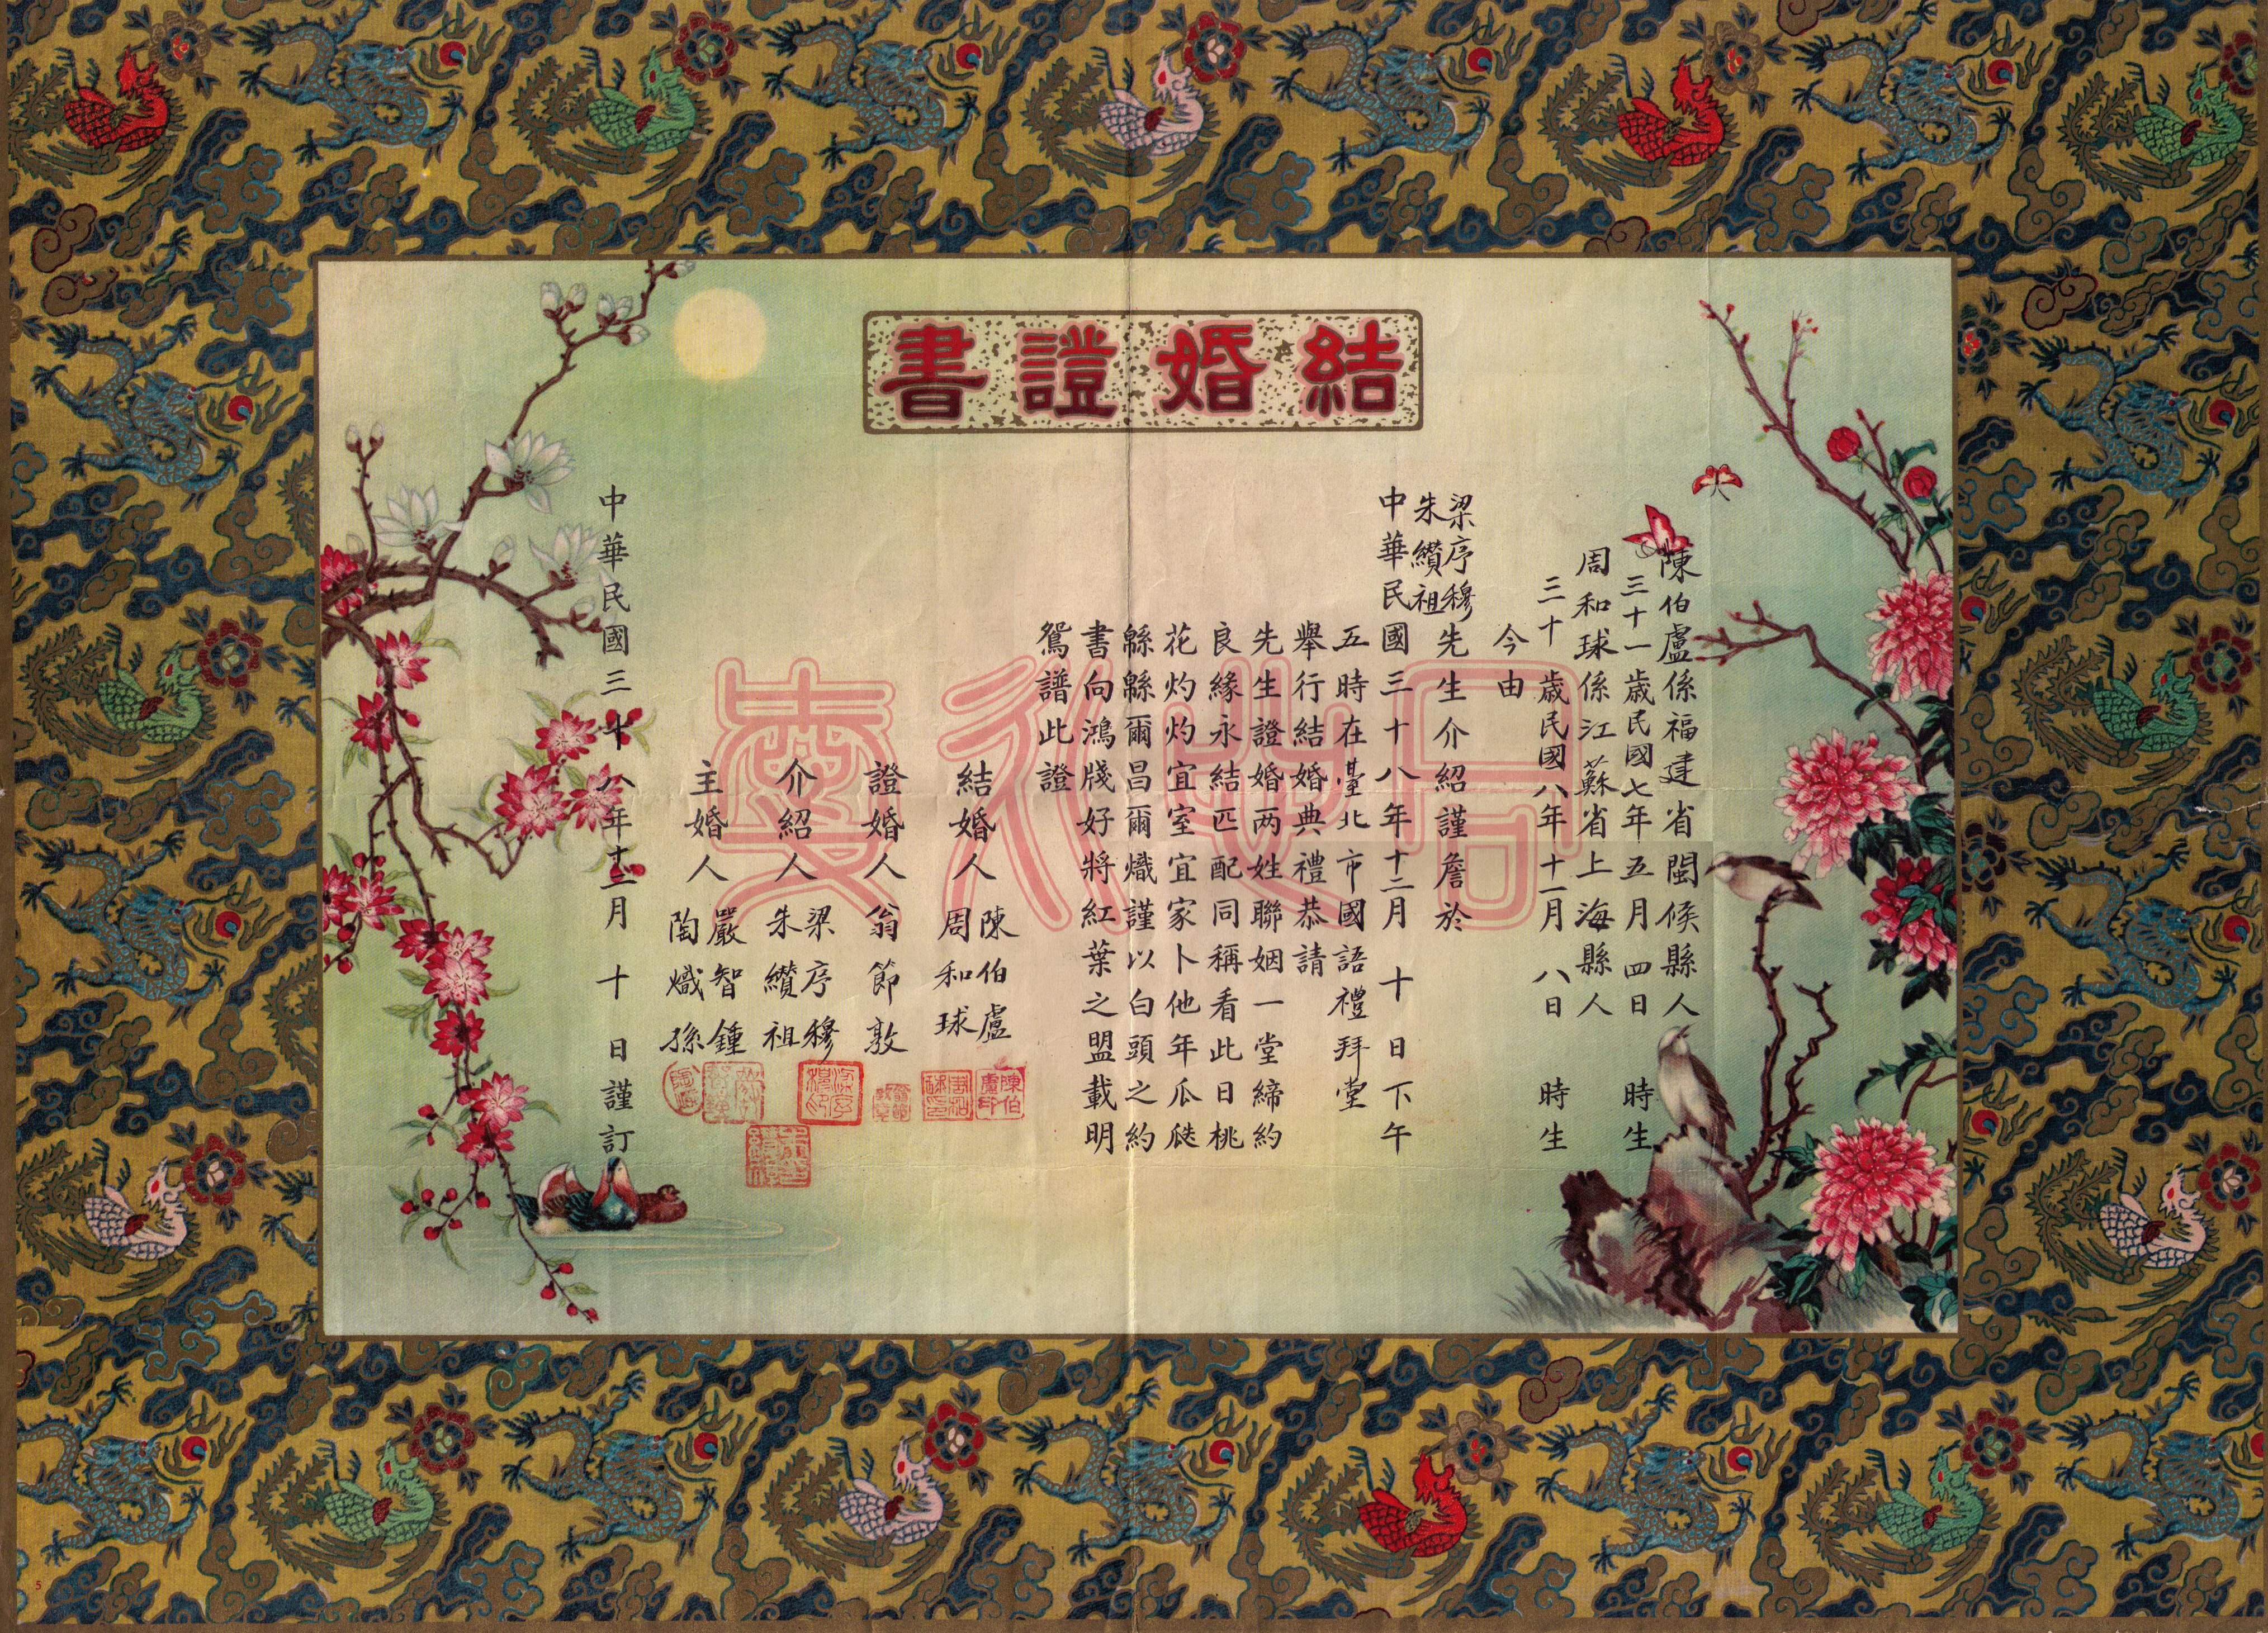 結婚證書
陳伯盧係福建省閩侯縣人
三十一歲民國七年五月四日 時生
周和球係江蘇省上海縣人
三十歲民國八年十一月八日 時生
今由
梁序穆
朱纘祖
先生介紹謹詹於
中華民國三十八年十二月十日下午
五時在臺北市國語禮拜堂
舉行結婚典禮恭請
先生證婚两姓聯姻一堂締約
良緣永結匹配同稱看此日桃
花灼灼宜室宜家卜他年瓜瓞
緜緜爾昌爾熾謹以白頭之約
書向鴻牋好將紅葉之盟載明
鴛譜此證
結婚人 陳伯盧
周和球
證婚人 翁節敦
介紹人 梁序穆
朱纘祖
主婚人 嚴智鍾
陶熾孫
中華民國三十八年十二月十日謹訂
陳伯盧印
5